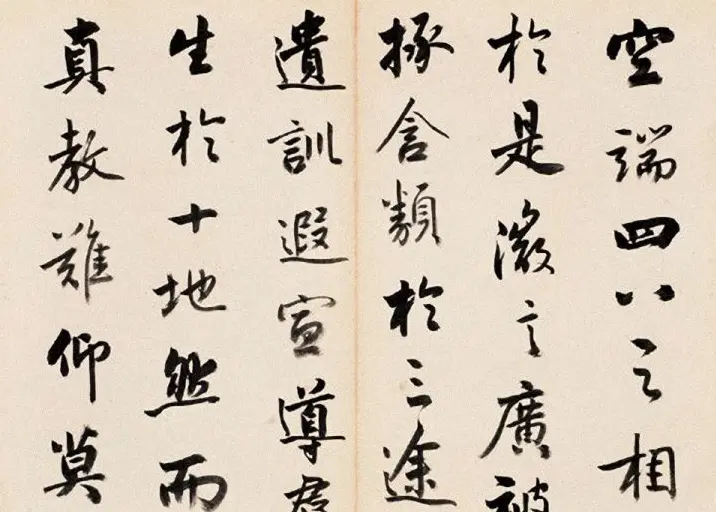 空端四八之相
於是微言廣被
拯含類於三途
遺訓遐宣導群
生於十地然而
真教難仰莫